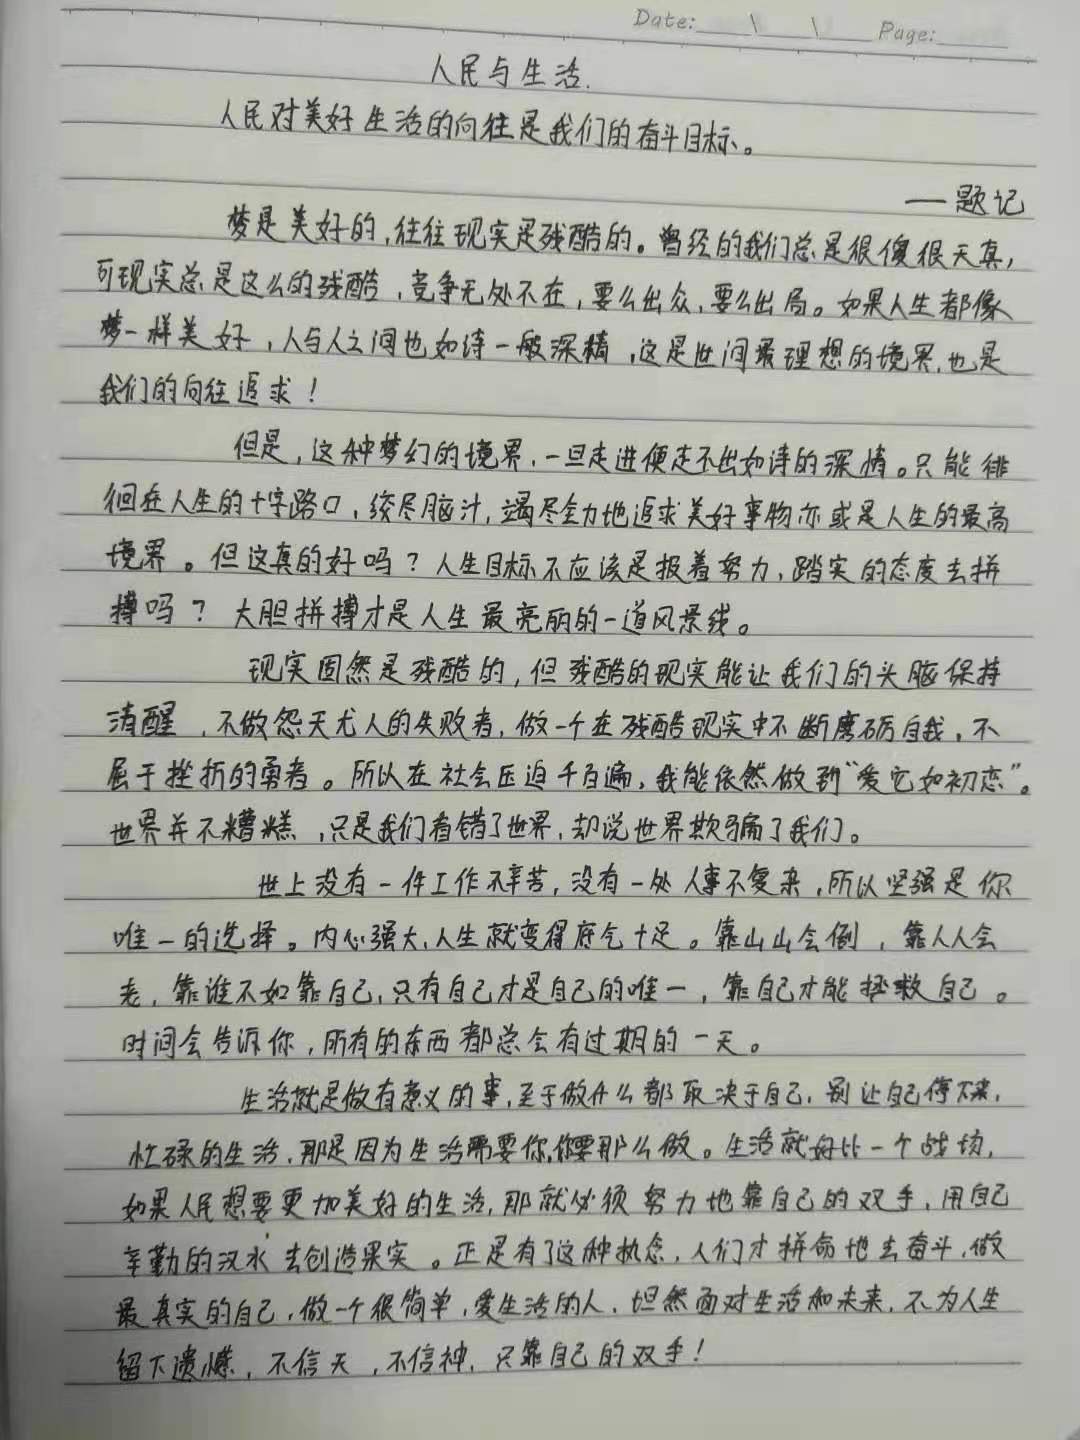 Date: \ \ Page:
人民与生活.
人民对美好生活的向往是我们的奋斗目标。
——题记
梦是美好的,往往现实是残酷的。曾经的我们总是很傻很天真,
可现实总是这么的残酷,竞争无处不在,要么出众,要么出局。如果人生都像
梦一样美好,人与人之间也如诗一般深情,这是世间最理想的境界,也是
我们的向往追求!
但是,这种梦幻的境界,一旦走进便走不出如诗的深情。只能徘
徊在人生的十字路口,绞尽脑汁,竭尽全力地追求美好事物亦或是人生的最高
境界。但这真的好吗?人生目标不应该是报着努力,踏实的态度去拼
搏吗?大胆拼搏才是人生最亮丽的一道风景线。
现实固然是残酷的,但残酷的现实能让我们的头脑保持
清醒,不做怨天尤人的失败者,做一个在残酷现实中不断磨砺自我,不
屈于挫折的勇者。所以在社会压迫千百遍,我能依然做到“爱它如初恋”。
世界并不糟糕,只是我们看错了世界,却说世界欺骗了我们。
世上没有一件工作不辛苦,没有一处人事不复杂,所以坚强是你
唯一的选择。内心强大,人生就变得底气十足。靠山山会倒,靠人人会
老,靠谁不如靠自己,只有自己才是自己的唯一,靠自己才能拯救自己。
时间会告诉你,所有的东西都总会有过期的一天。
生活就是做有意义的事,至于做什么都取决于自己,别让自己停下来,
忙碌的生活,那是因为生活需要你,你要那么做。生活就好比一个战场,
如果人民想要更加美好的生活,那就必须努力地靠自己的双手,用自己
辛勤的汉水去创造果实。正是有了这种执念,人们才拼命地去奋斗,做
最真实的自己,做一个很简单,爱生活的人,坦然面对生活和未来,不为人生
留下遗憾,不信天,不信神,只靠自己的双手!